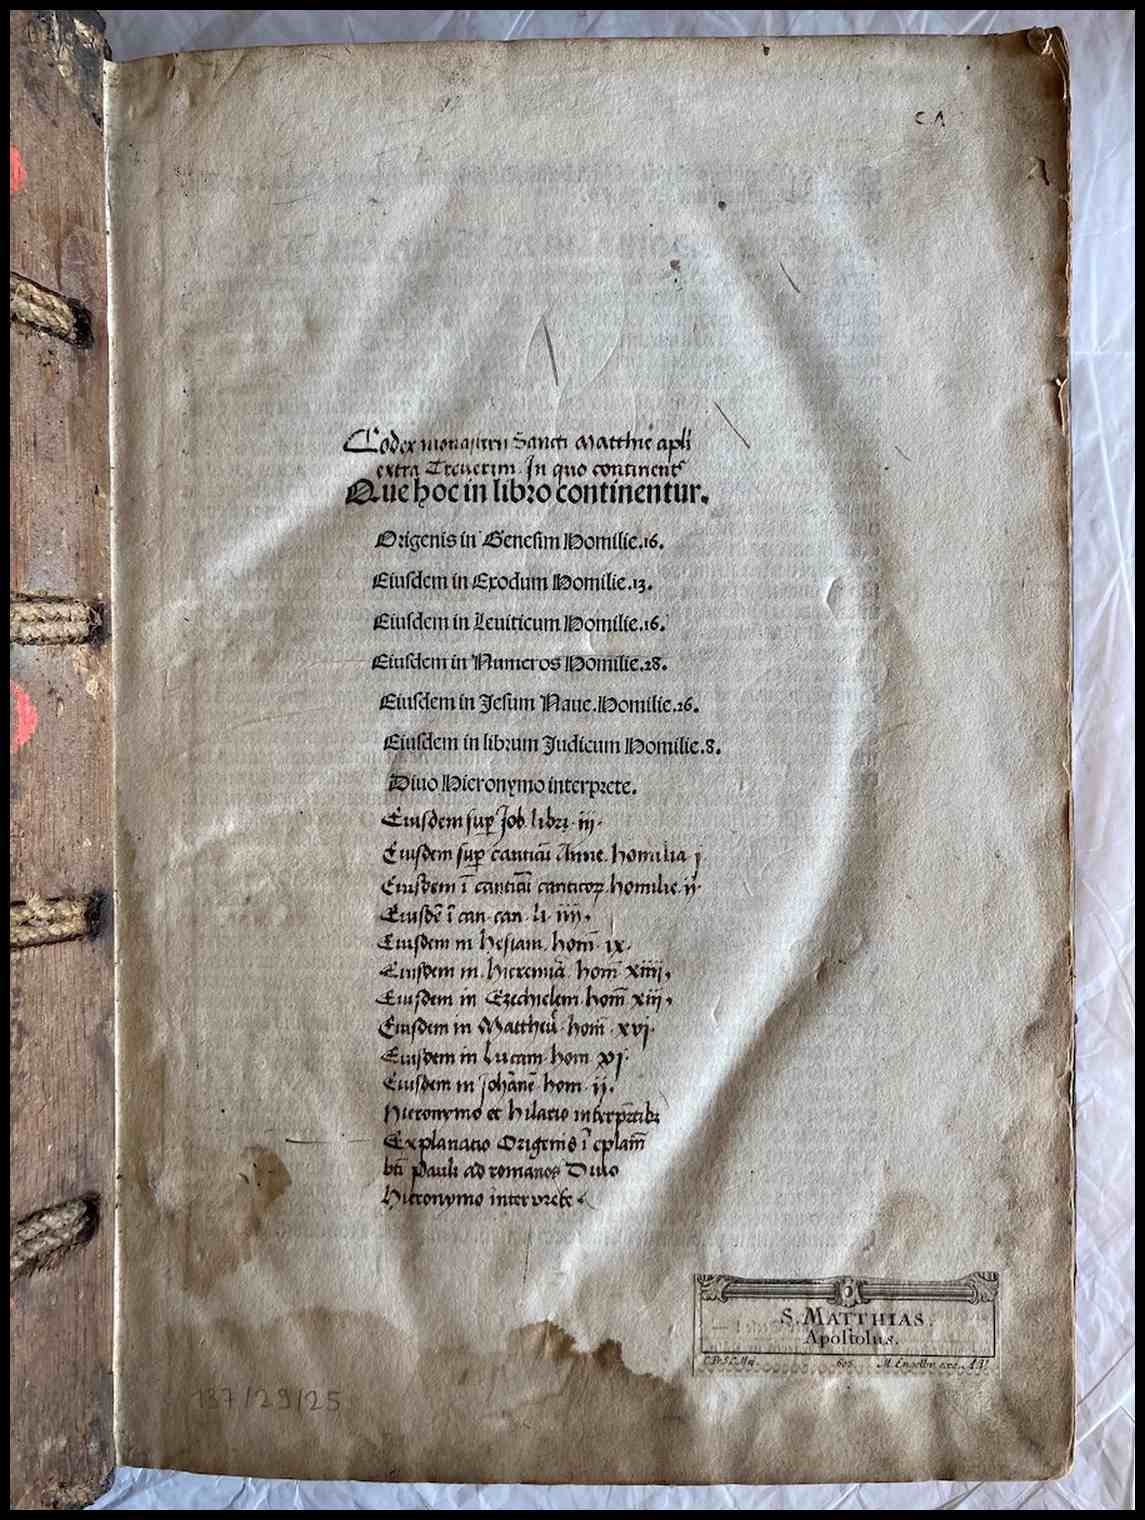 C A
Codex monasterii Sancti Matthie apli
extra Treuerim. In quo continent᷑
Que hoc in libro continentur.
Origenis in Genesim Homilie.16.
Eiusdem in Exodum Homilie.13.
Eiusdem in Leuiticum Homilie.16.
Eiusdem in Numeros Homilie.28.
Eiusdem in Jesum Naue.Homilie.26.
Eiusdem in librum Judicum Homilie.8.
Diuo Hieronymo interprete.
Eiusdem sup Job libri iij.
Eiusdem sup canticū Anne. homilia j
Eiusdem ī canticū canticoꝝ homilie ij.
Eiusdē ī can can li iiij.
Eiusdem in hesiam hom̄ ix.
Eiusdem in hieremiā hom̄ xiiij,
Eiusdem in Ezechielem hom̄ xiij,
Eiusdem in Mattheū hom̄ xvj.
Eiusdem in Lucam hom xj.
Eiusdem in johānē hom ij.
Hieronymo et hilario interpretib
Explanatio Origenis ī eplam̄
bti pauli ad romanos Diuo
Hieronymo interprete
S. MATTHIAS.
Apoſtolus.
C.Pr.S.C.Maj. 605. M. Engelbr. exc. A.V.
137/29/25